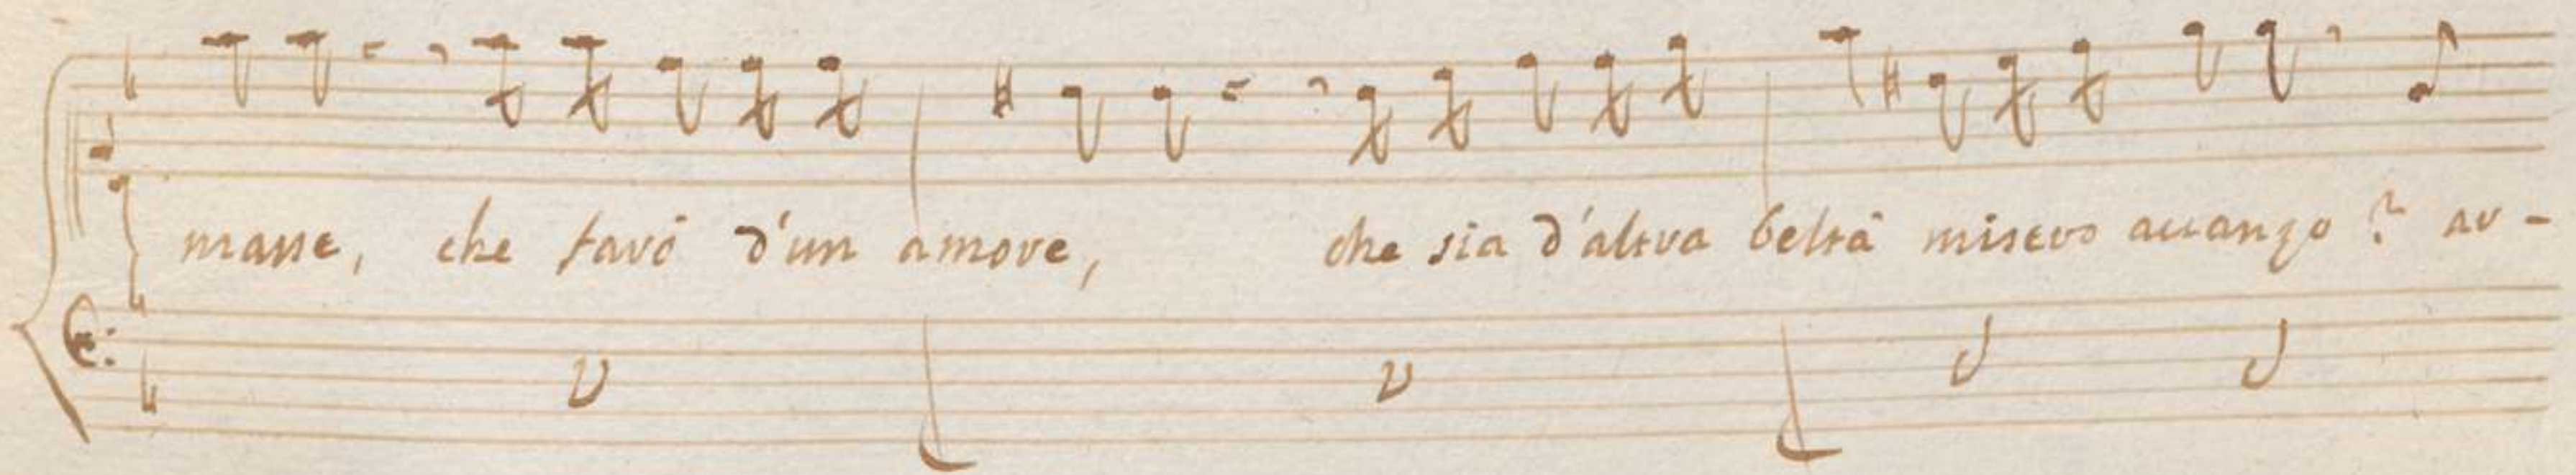 masse, che farò d'un amore, che sia d'altra beltà misero auanzo? ar-